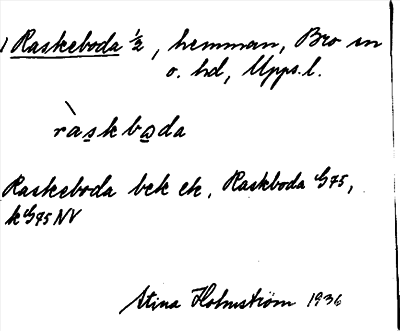 1 Raskeboda ½, hemman, Bro sn
o. hd, Upps. l.
ràskbɷda
Raskeboda bek ek, Raskboda G75,
k G75 NV
Stina Holmström 1936